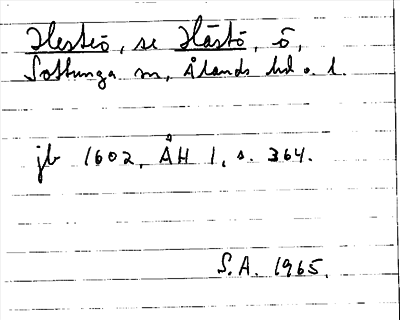 Hesteö, se Hästö, ö,
Sottunga sn, Ålands hd o. l.
jb 1602, ÅH 1, s. 364.
S.A. 1965.